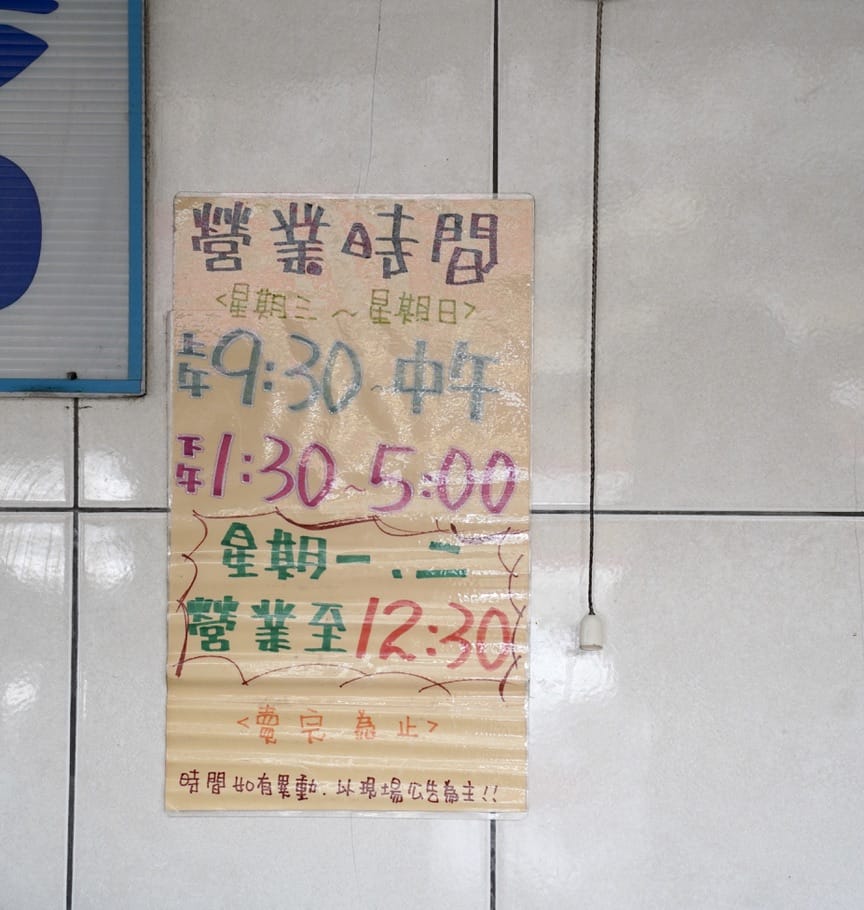 營業時間
<星期三～星期日>
上午9:30~中午
下午1:30~5:00
星期一、二
營業至12:30
<賣完為止>
時間如有異動.以現場公告為主!!